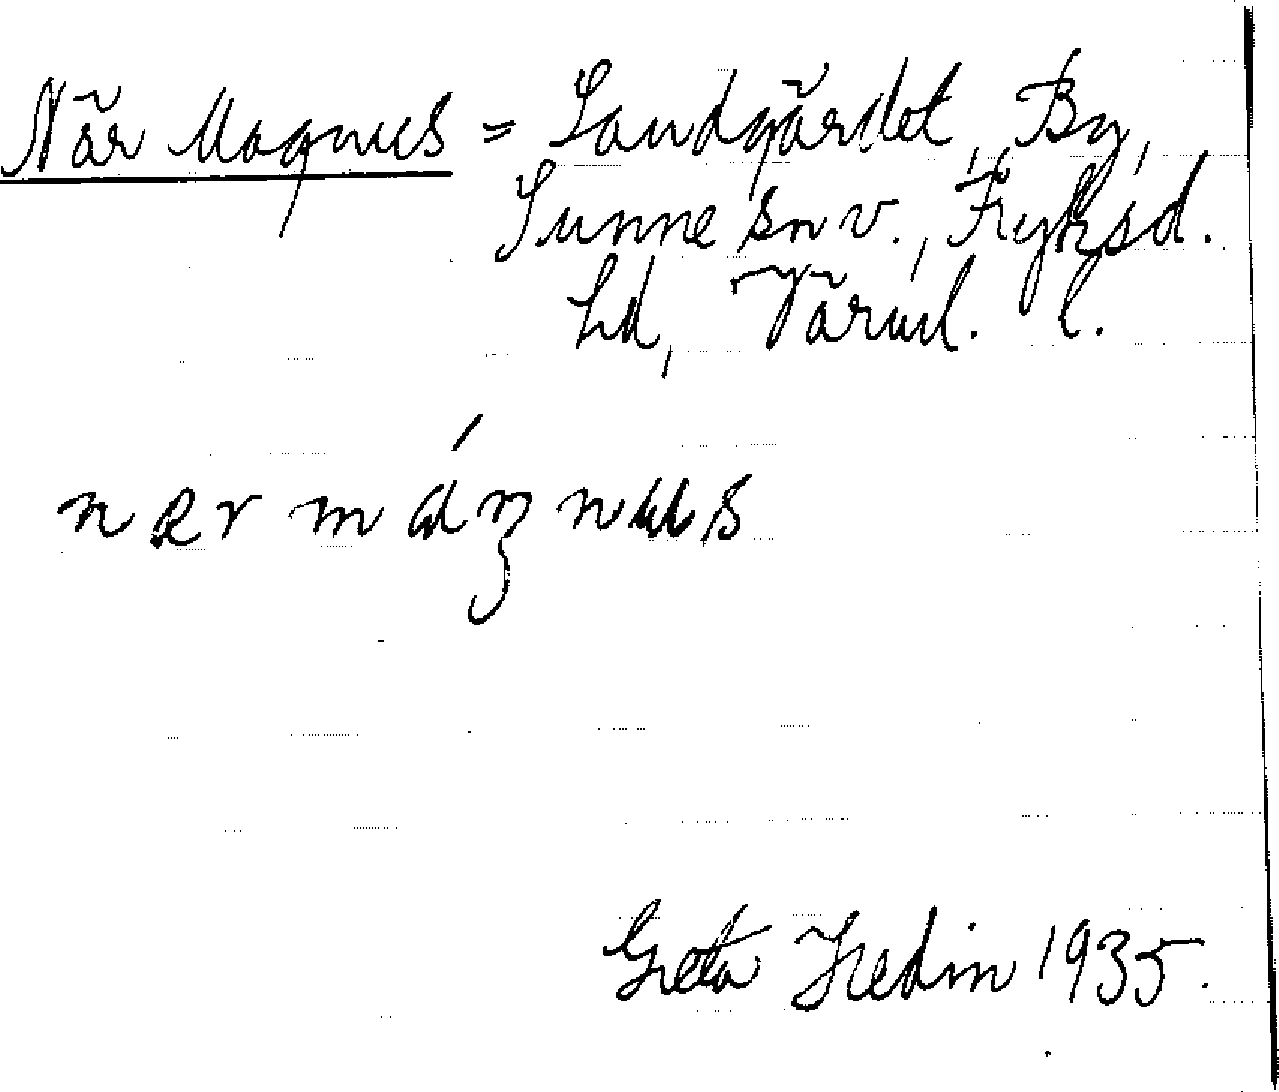 När Magnus = Sandgärdet, By,
Sunne sn v., Fryksd.
hd, Värml. l.
n æ r m á ŋ n u s
Greta Hedin 1935.